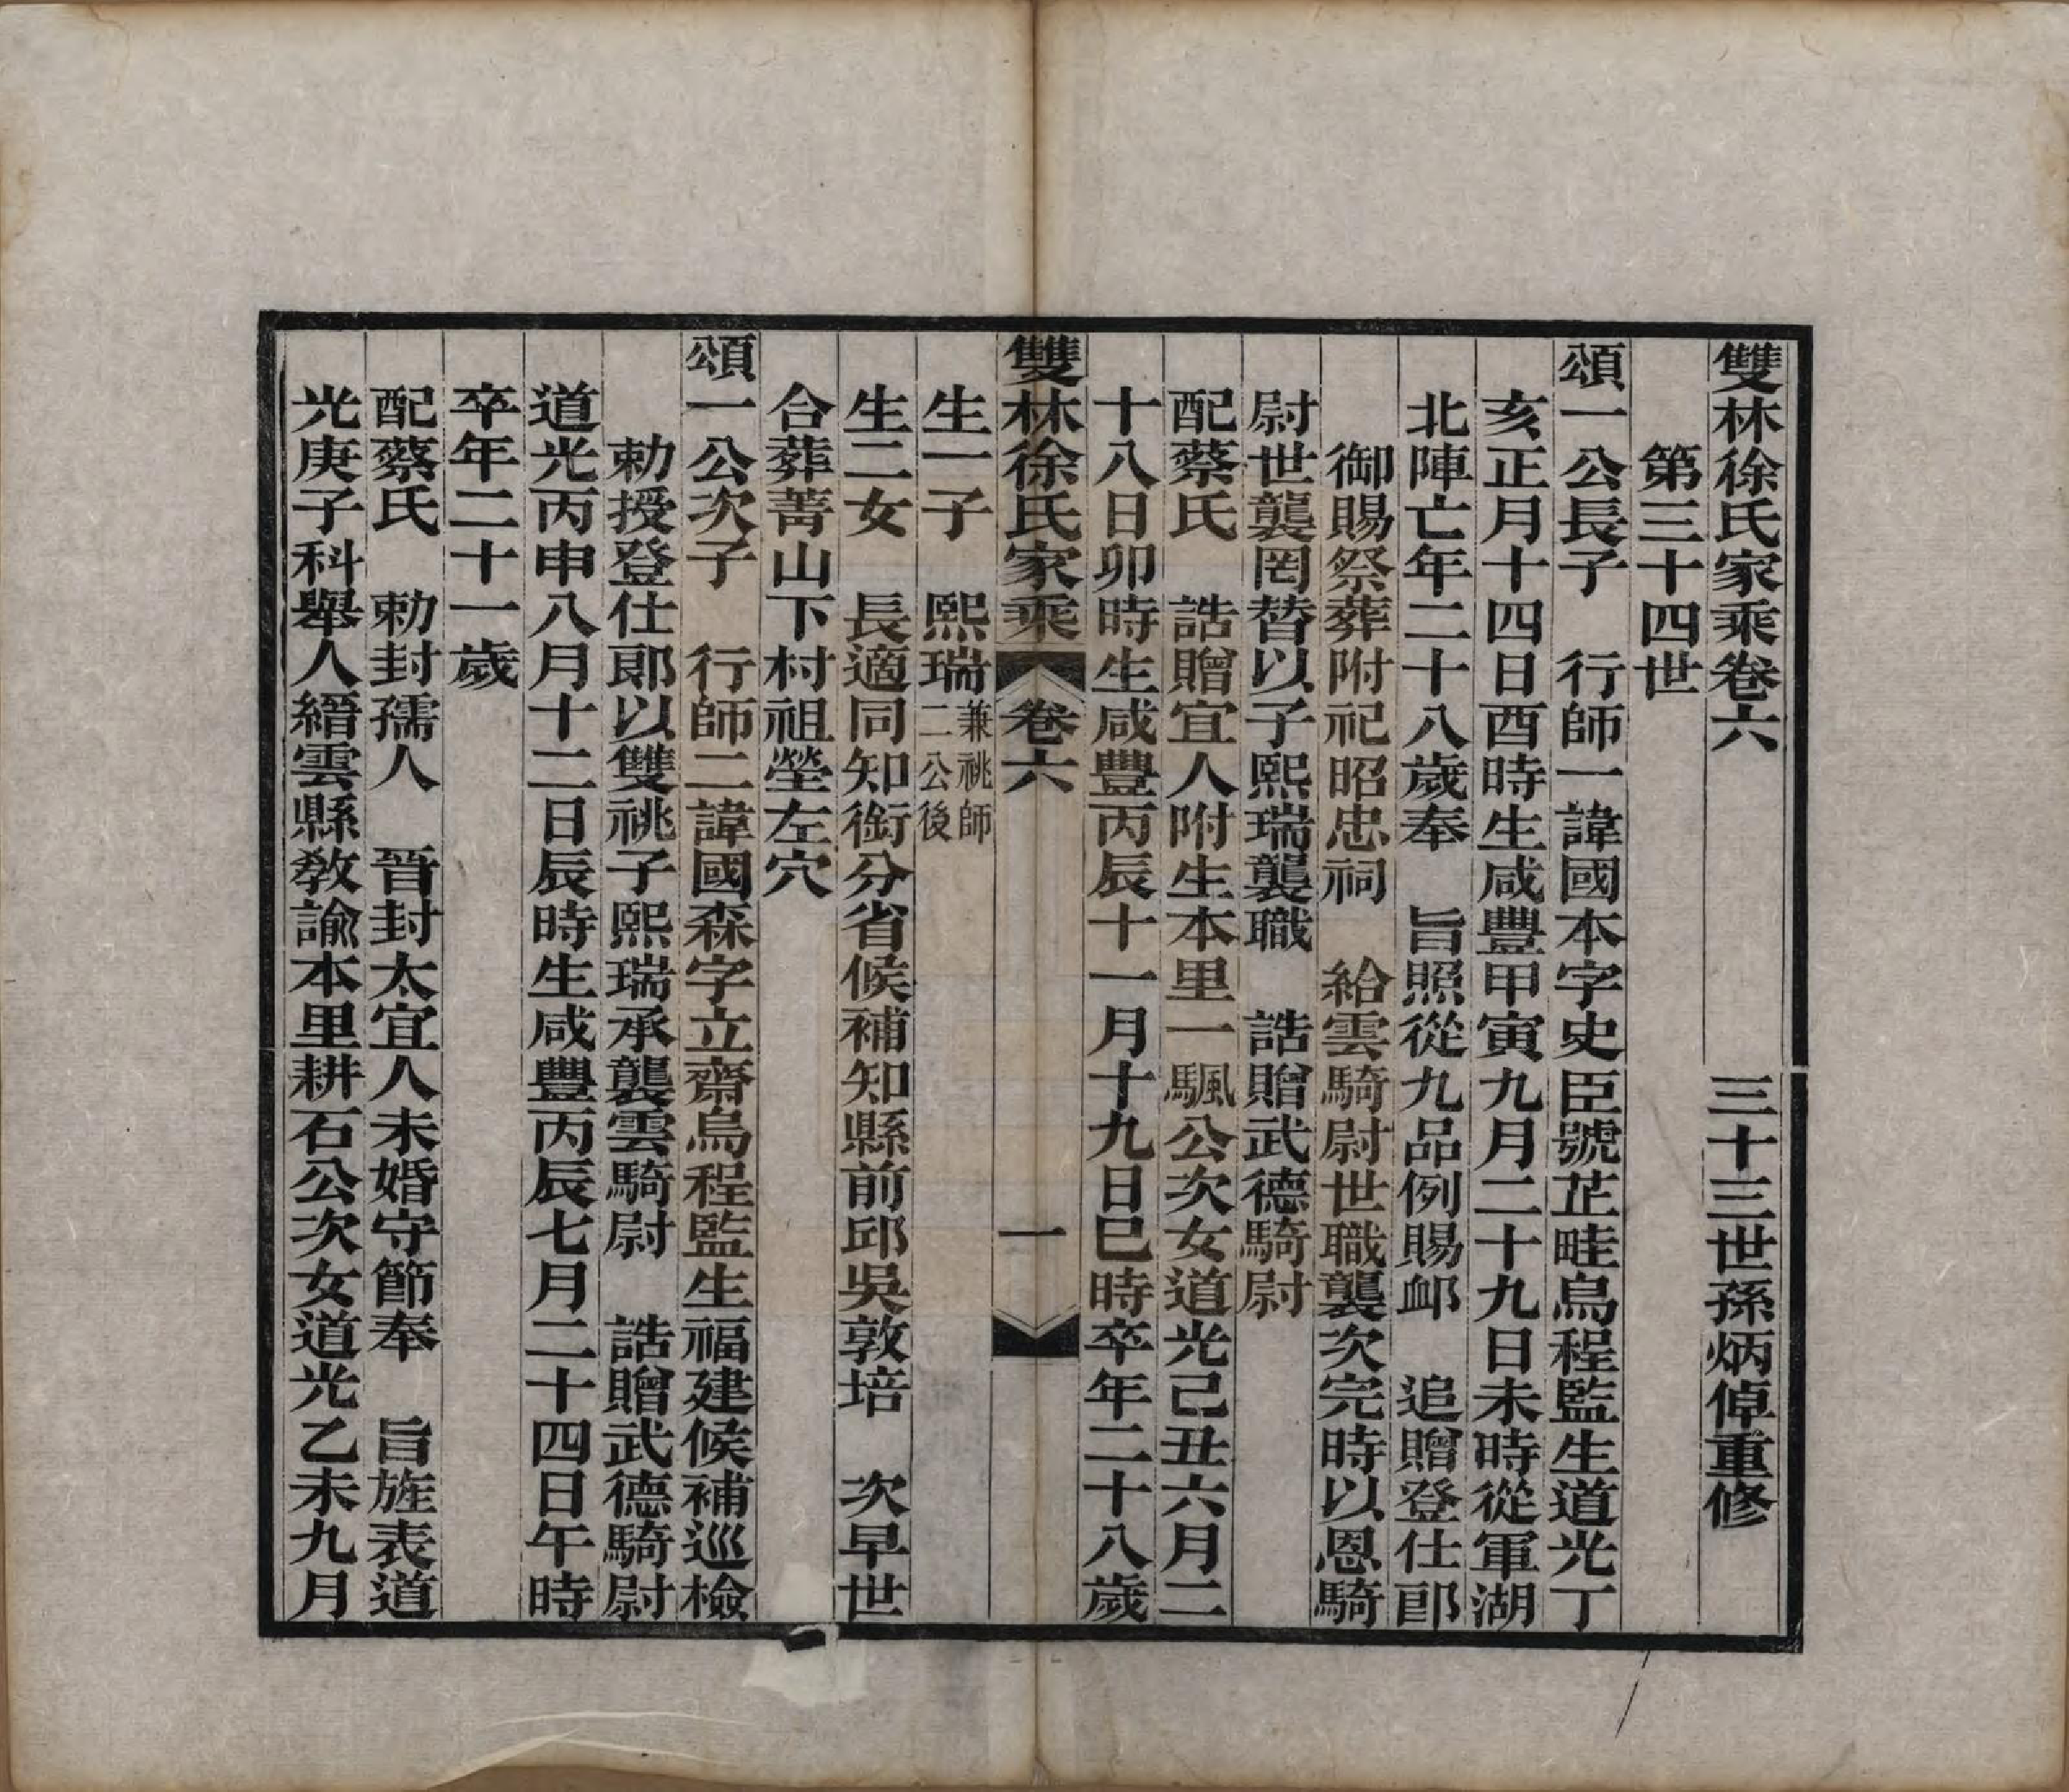 雙林徐氏家乘卷六　三十三世孫炳倬重修
第三十四世
頌一公長子　行師一諱國本字史臣號芷畦烏程監生道光丁
亥正月十四日酉時生咸豐甲寅九月二十九日未時從軍湖
北陣亡年二十八歲奉　旨照從九品例賜卹　追贈登仕郎
御賜祭葬附祀昭忠祠　給雲騎尉世職襲次完時以恩騎
尉世襲罔替以子熙瑞襲職　誥贈武德騎尉
配蔡氏　誥贈宜人附生本里一颿公次女道光己丑六月二
十八日卯時生咸豐丙辰十一月十九日巳時卒年二十八歲
雙林徐氏家乘　卷六　一
生一子　熙瑞兼祧師二公後
生二女　長適同知銜分省候補知縣前邱吳敦培　次早世
合葬菁山下村祖塋左穴
頌一公次子　行師二諱國森字立齋烏程監生福建候補巡檢
勅授登仕郎以雙祧子熙瑞承襲雲騎尉　誥贈武德騎尉
道光丙申八月十二日辰時生咸豐丙辰七月二十四日午時
卒年二十一歲
配蔡氏　勅封孺人　晉封太宜人未婚守節奉　旨旌表道
光庚子科舉人縉雲縣教諭本里耕石公次女道光乙未九月